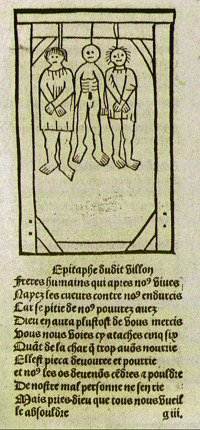 Epitaphe dudit villon
Freres humains qui apres noꝰ viues
Nayez les cueurs contre noꝰ endurcis
Car se pitie de noꝰ pouurez auez
Dieu en aura plustost de vous mercis
Vous nous voies cy ataches cinq six
Quāt de la char q̄ trop auōs nourrie
Ellest pieca deuouree et pourrie
et noꝰ les os deuenōs cēdres a pouldre
De nostre mal personne ne sen rie
Mais pries dieu que tous nous vueil
le absouldre g iii.